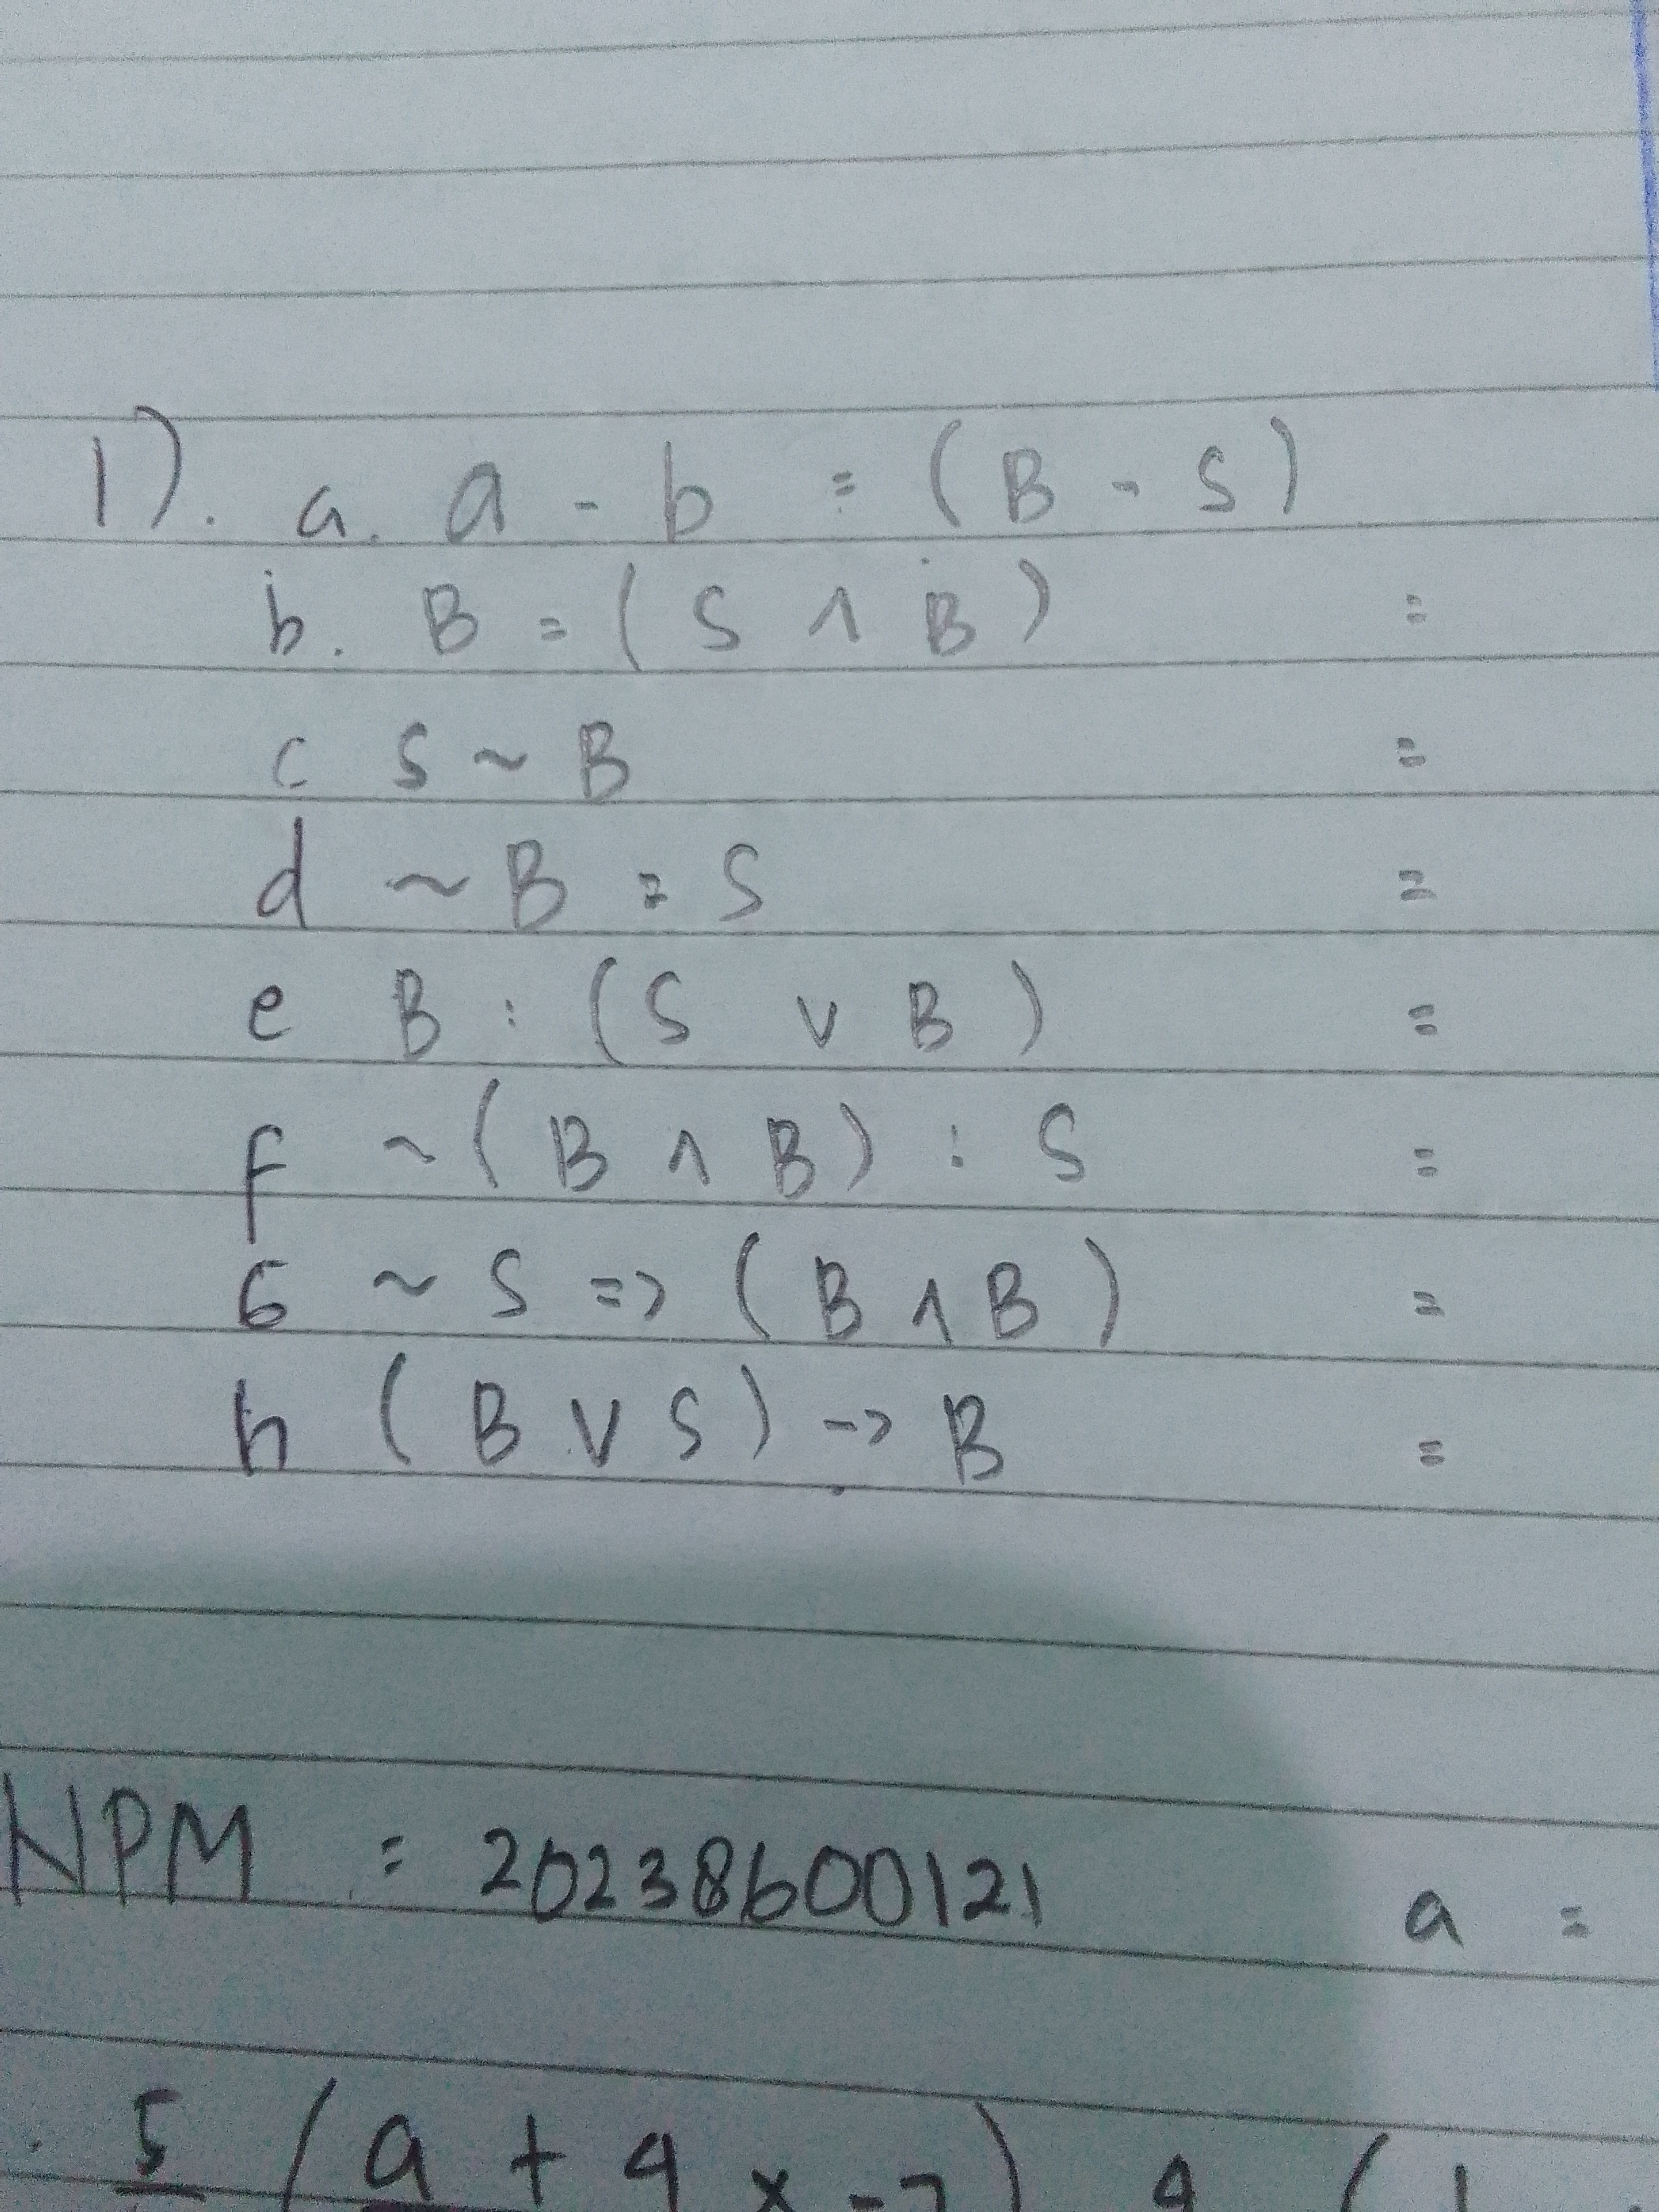 1). a. a - b = (B - S)
b. B = (S ∧ B) =
c S ~ B =
d ~ B = S =
e B : (S v B) =
f ~ (B ∧ B) : S =
G ~ S => (B ∧ B) =
h (B V S) -> B =
NPM = 20238600121 a =
5 (a + 4 x - 7) 4 (